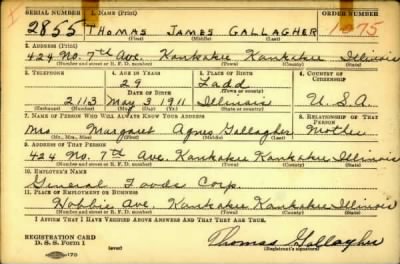 SERIAL NUMBER 1. NAME (Print) ORDER NUMBER
2855 THOMAS JAMES GALLAGHER 1075
(First) (Middle) (Last)
2. ADDRESS (Print)
424 No. 7th Ave. Kankakee Kankakee Illinois
(Number and street or R. F. D. number) (Town) (County) (State)
3. TELEPHONE 4. AGE IN YEARS 5. PLACE OF BIRTH 6. COUNTRY OF CITIZENSHIP
29 Ladd
DATE OF BIRTH (Town or county)
2113 May 3 1911 Illinois U.S.A.
(Exchange) (Number) (Mo.) (Day) (Yr.) (State or country)
7. NAME OF PERSON WHO WILL ALWAYS KNOW YOUR ADDRESS 8. RELATIONSHIP OF THAT PERSON
Mrs. Margaret Agnes Gallagher Mother
(Mr., Mrs., Miss) (First) (Middle) (Last)
9. ADDRESS OF THAT PERSON
424 No. 7th Ave. Kankakee Kankakee Illinois
(Number and street or R. F. D. number) (Town) (County) (State)
10. EMPLOYER'S NAME
General Foods Corp.
11. PLACE OF EMPLOYMENT OR BUSINESS
Hobbie Ave. Kankakee Kankakee Illinois
(Number and street or R. F. D. number) (Town) (County) (State)
I AFFIRM THAT I HAVE VERIFIED ABOVE ANSWERS AND THAT THEY ARE TRUE.
REGISTRATION CARD
D. S. S. Form 1 (over) Thomas Gallagher
(Registrant's signature)